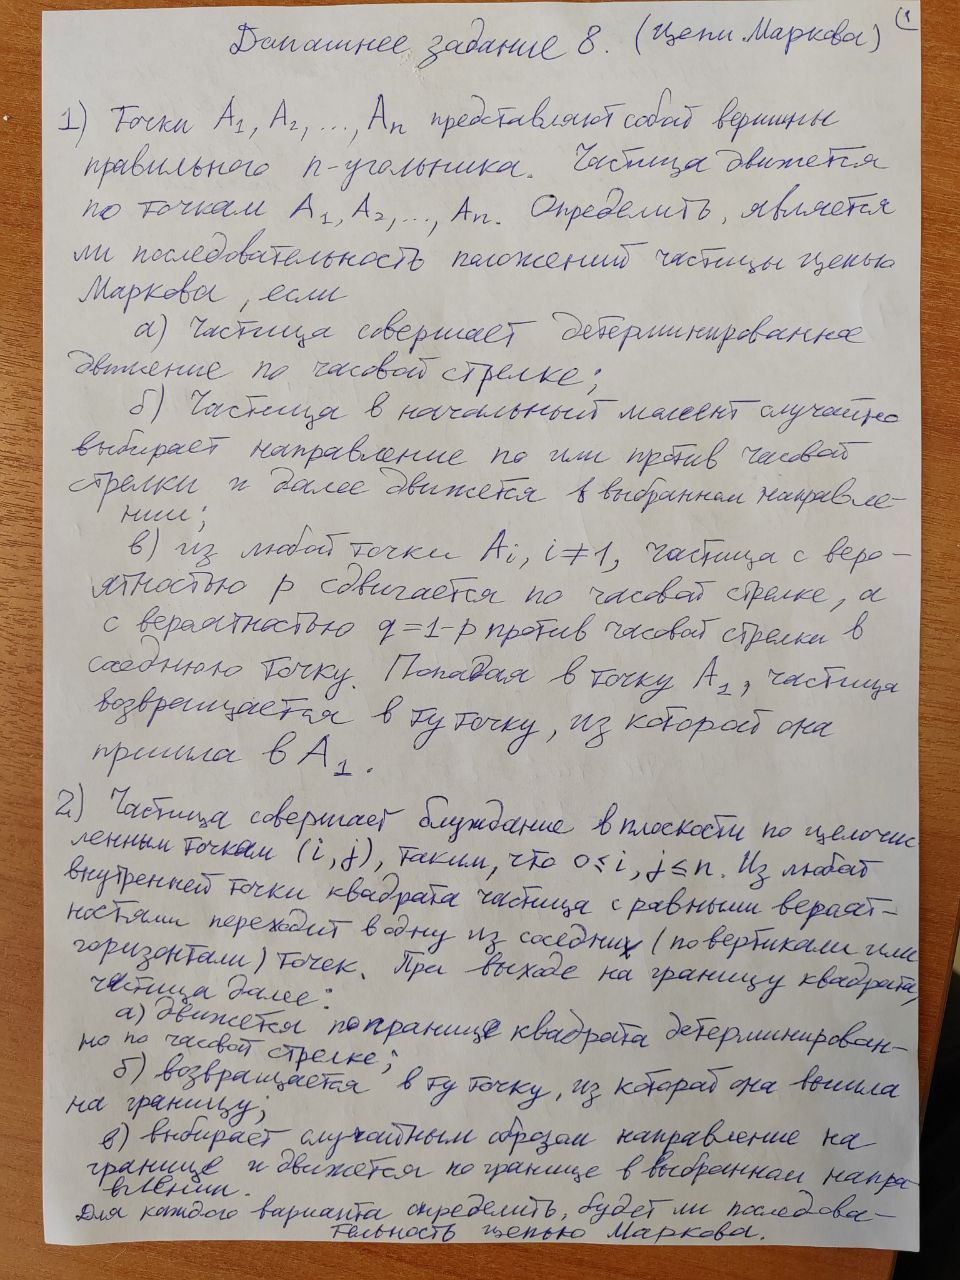 (1
Домашнее задание 8. (Цепи Маркова)
1) Точки A₁, A₂, ..., Aₙ представляют собой вершины
правильного n-угольника. Частица движется
по точкам A₁, A₂, ..., Aₙ. Определить, является
ли последовательность положений частицы цепью
Маркова, если
а) Частица совершает детерминированное
движение по часовой стрелке;
б) Частица в начальный момент случайно
выбирает направление по или против часовой
стрелки и далее движется в выбранном направле-
нии;
в) из любой точки Aᵢ, i≠1, частица с веро-
ятностью p сдвигается по часовой стрелке, а
с вероятностью q=1-p против часовой стрелки в
соседнюю точку. Попадая в точку A₁, частица
возвращается в ту точку, из которой она
пришла в A₁.
2) Частица совершает блуждание в плоскости по целочис
ленным точкам (i,j), таким, что 0≤i,j≤n. Из любой
внутренней точки квадрата частица с равными вероят-
ностями переходит в одну из соседних (по вертикали или
горизонтали) точек. При выходе на границу квадрата,
частица далее:
а) движется по границе квадрата детерминирован-
но по часовой стрелке;
б) возвращается в ту точку, из которой она вышла
на границу;
в) выбирает случайным образом направление на
границе и движется по границе в выбранном напра-
влении.
Для каждого варианта определить, будет ли последова-
тельность цепью Маркова.